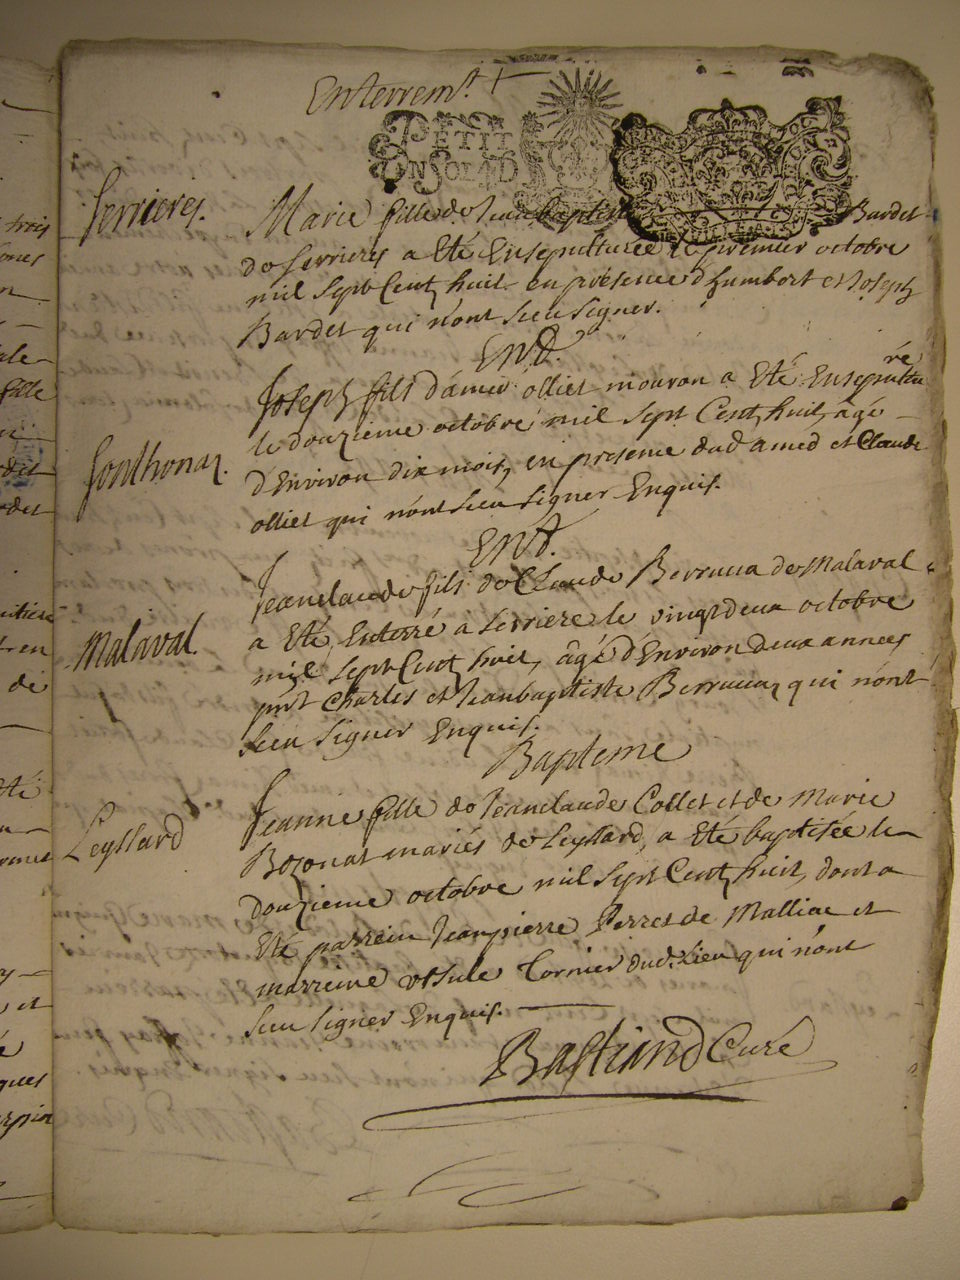 Enterremt
PETIT
ON SOL 4 D
Serrieres.
Marie fille de Jean baptiste Bardet
de serrieres a Eté Ensepulturée le premier octobre
mil Sept Cent huit en présence d'humbert et Joseph
Bardet qui n'ont sceu signer.
Ent.
Joseph fils d'amed olliet mouron a Eté Ensepultu
ré
Sonthonaz.
le douzieme octobre mil sept Cent huit, agé
d'Environ dix mois, en presence dud amed et Claude
olliet qui n'ont sceu signer Enquis.
Ent.
Jeanclaude fils de Claude Berruca de Malaval
Malaval.
a Eté Enterré a Serriere le vingtdeux octobre
mil sept Cent huit, âgé d'Environ deux années
pnt Charles et Jeanbaptiste Berrucaz qui n'ont
sceu signer Enquis.
Bapteme
Leyssard
Jeanne fille de Jeanclaude Collet et de Marie
Bozonat mariés de Leyssard, a Eté baptisée le
douzieme octobre mil sept Cent huit, dont a
Eté parrein Jeanpierre Perret de Malliac et
marreine Ursule Tornier dud. Lieu qui n'ont
sceu signer Enquis.
Bastiand Curé